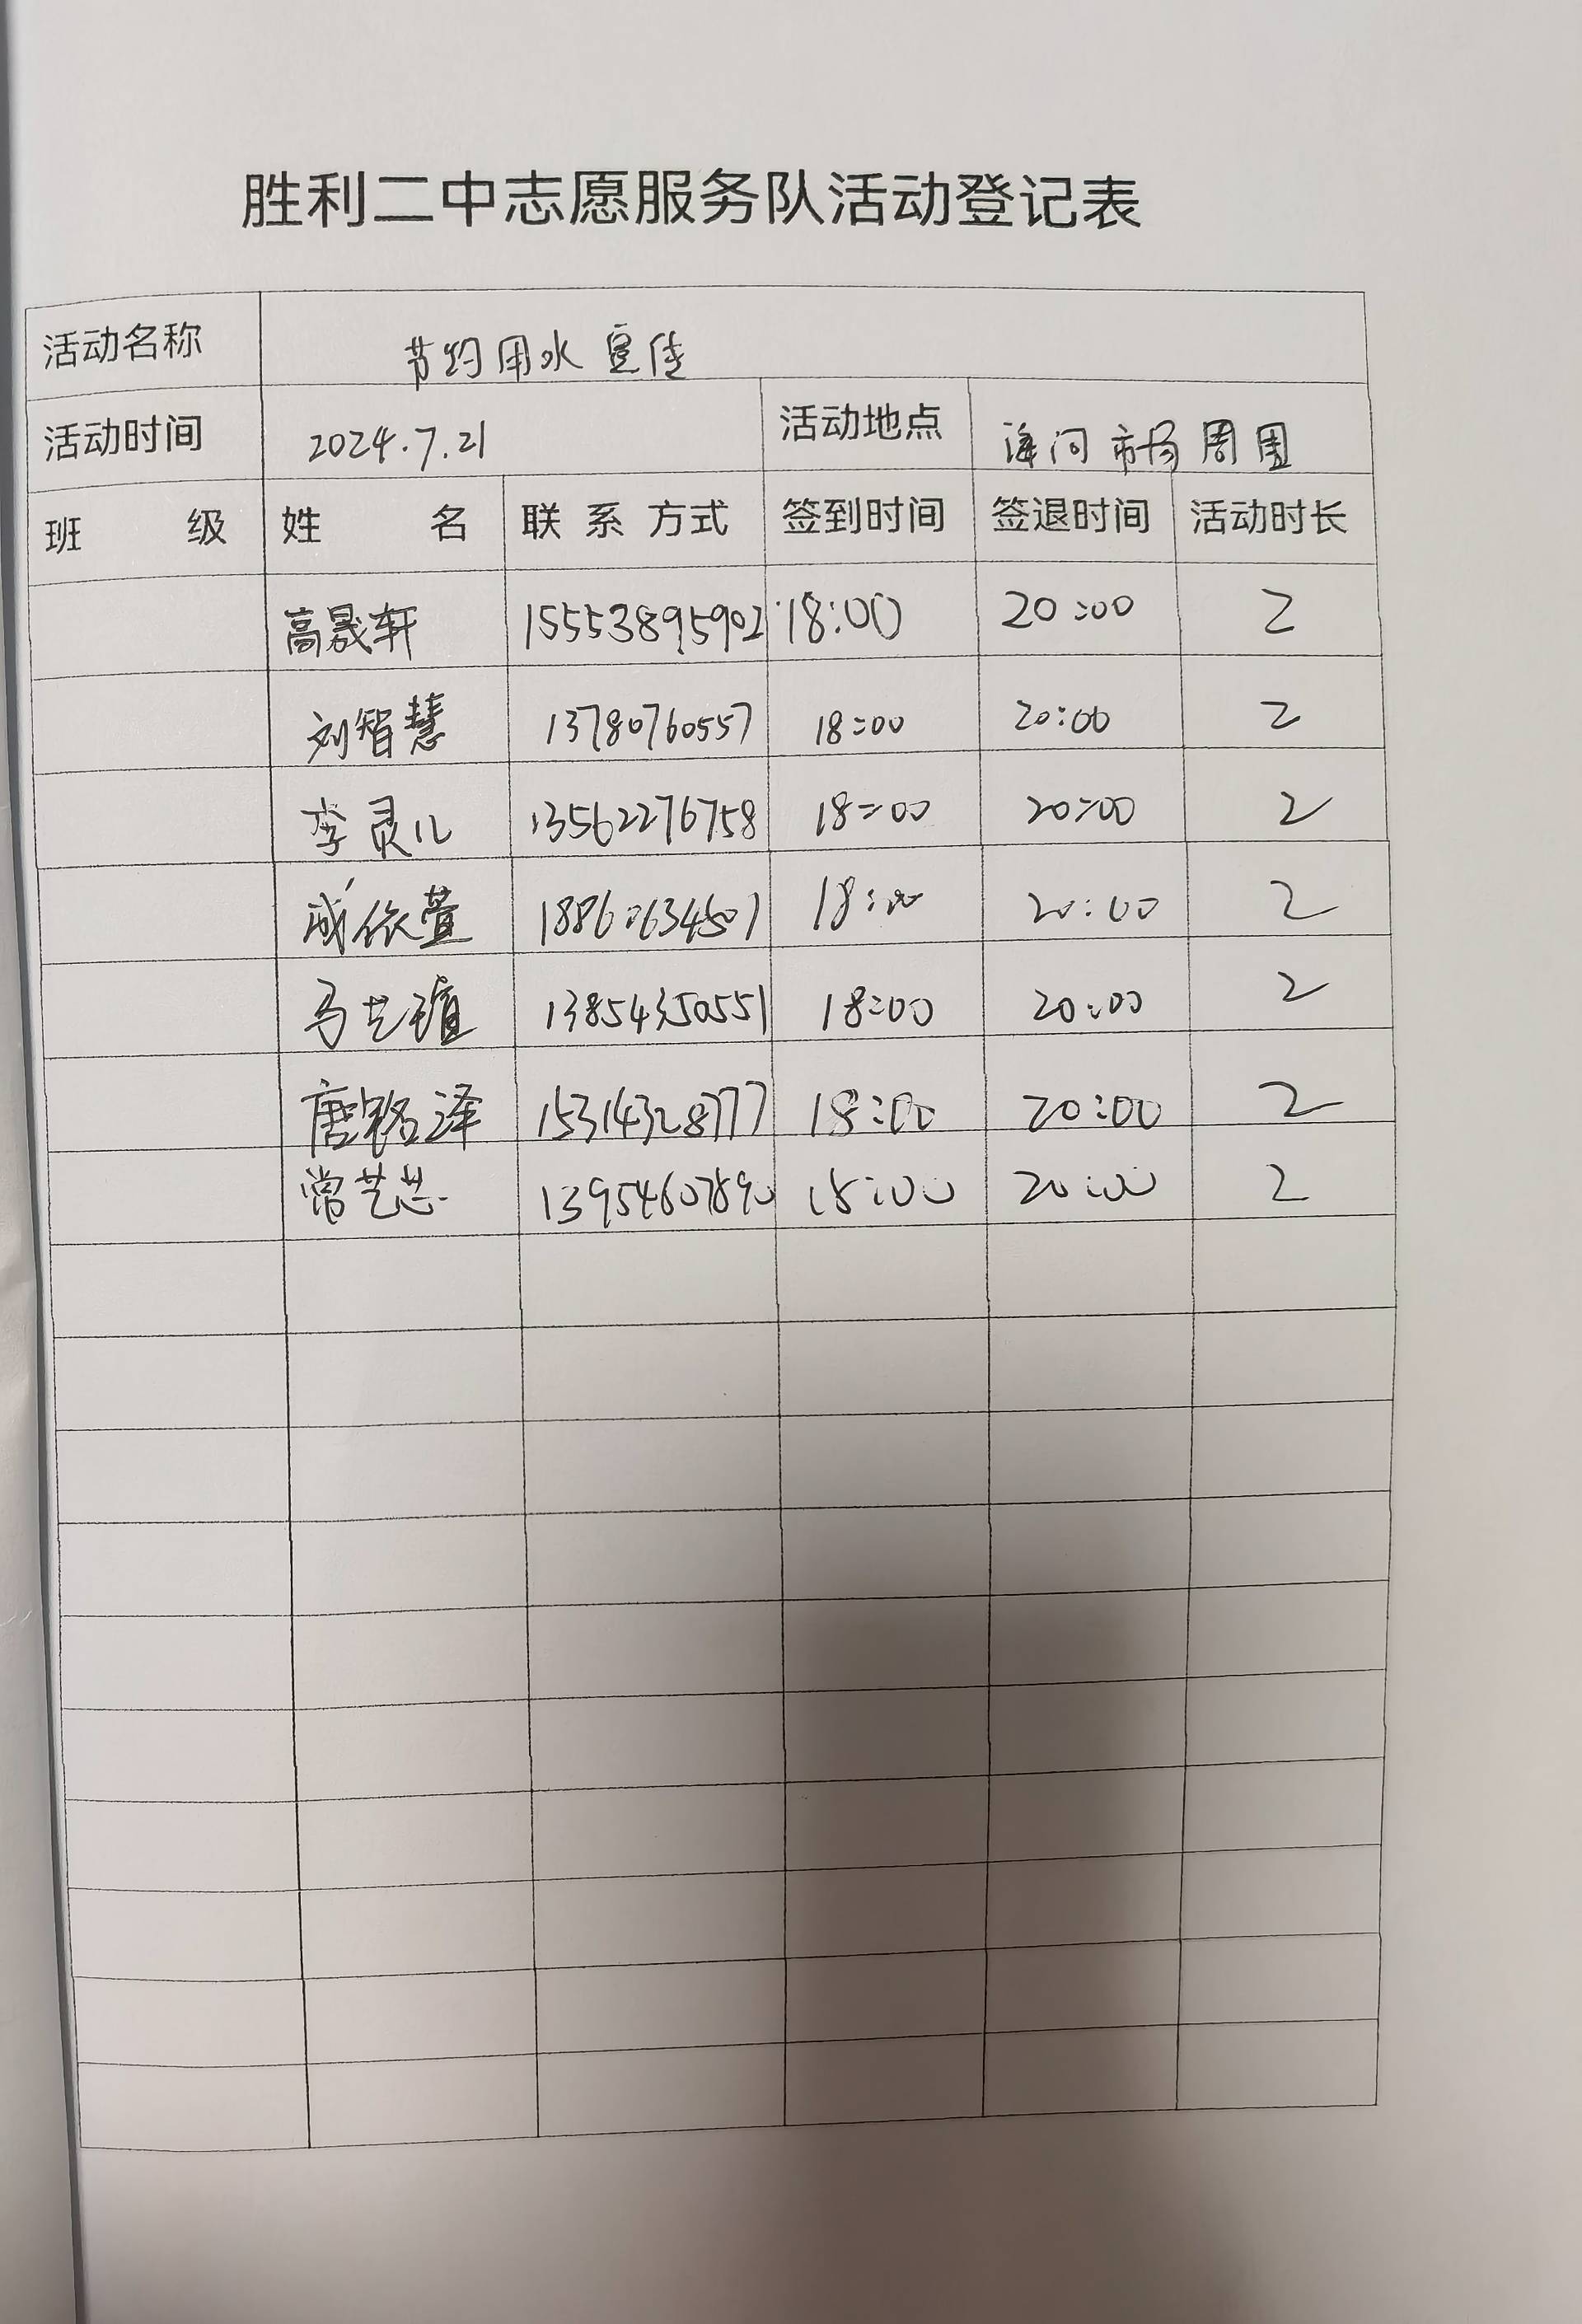 胜利二中志愿服务队活动登记表
活动名称 节约用水宣传
活动时间 2024.7.21 活动地点 海问市场周围
班 级 姓 名 联 系 方式 签到时间 签退时间 活动时长
高晟轩 15553895902 18:00 20:00 2
刘智慧 13780760557 18:00 20:00 2
李灵儿 13562276758 18:00 20:00 2
依萱 18:00 20:00 2
马艺瑄 13854350551 18:00 20:00 2
唐铭泽 15314328777 18:00 20:00 2
常艺芯 13954607890 18:00 20:00 2